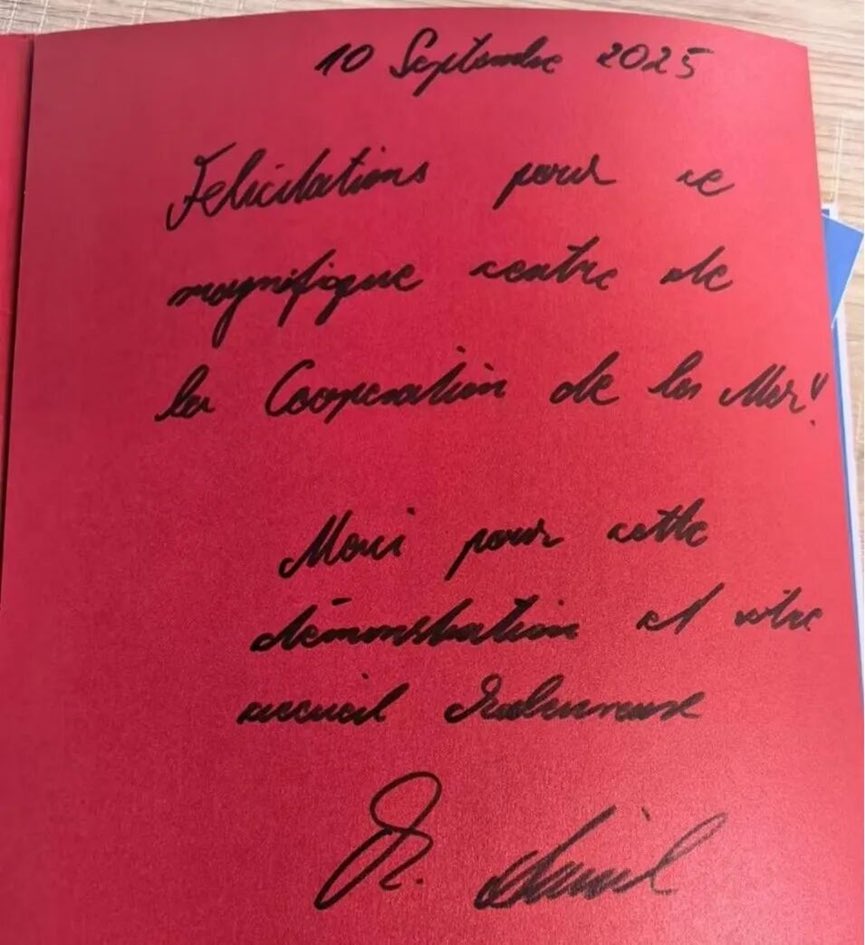 10 Septembre 2025
Felicitations pour ce
magnifique centre de
la Cooperation de la Mer!
Merci pour cette
démonstration et votre
accueil chaleureuse